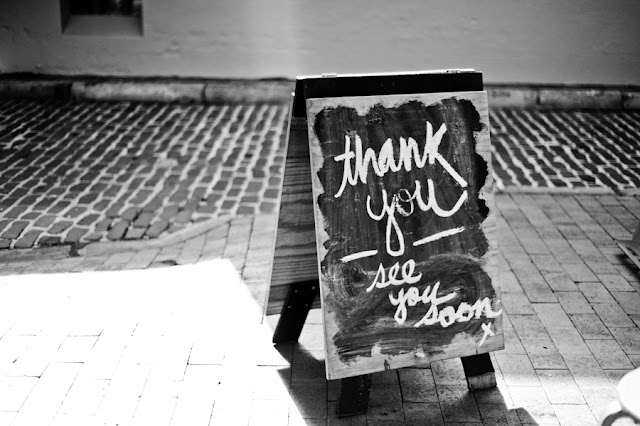 thank
you
see
you
soon
x